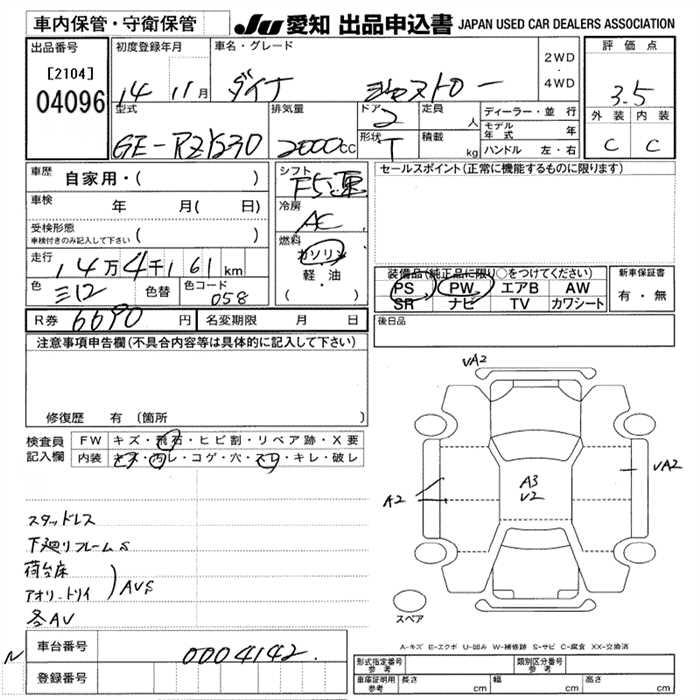 車内保管・守衛保管
JU 愛知 出品申込書 JAPAN USED CAR DEALERS ASSOCIATION
出品番号
[2104]
04096
初度登録年月
14 11月
車名・グレード
ダイナ ジャストロー
2WD
・
4WD
評価点
3.5
外装 内装
C C
型式
GE-RZY230
排気量
2000cc
ドア
2
形状
T
定員
人
積載
kg
ディーラー・並行
モデル年式 年
ハンドル 左・右
車歴
自家用・( )
車検
年 月( 日)
受検形態
車検付きのみ記入して下さい ( )
走行
14万4千161km
色
色替
色コード
058
シフト
F5速
冷房
AC
燃料
ガソリン
軽・油
( )
セールスポイント(正常に機能するものに限ります)
装備品(純正品に限り○をつけてください)
PS PW エアB AW
SR ナビ TV カワシート
新車保証書
有・無
R券 6690円
名変期限 月 日
後日品
注意事項申告欄(不具合内容等は具体的に記入して下さい)
修復歴 有(箇所 )
検査員記入欄
FW キズ・飛石・ヒビ割・リペア跡・X要
内装 キズ・汚レ・コゲ・穴・スレ・キレ・破レ
スタッドレス
下廻りフレームS
荷台床
アオリ-トリイ
AVS
各AV
VA2
A2
A3
V2
VA2
スペア
A-キズ E-エクボ U-凹み W-補修跡 S-サビ C-腐食 XX-交換済
N
車台番号
0004142
登録番号
形式指定番号 参考
類別区分番号 参考
車庫証明用 参考
長さ cm
幅 cm
高さ cm